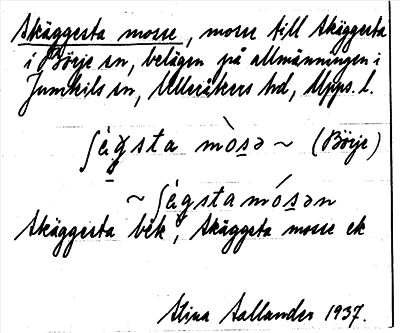 Skäggesta mosse, mosse till Skäggesta
i Börje sn, belägen på allmänningen i
Jumkils sn, Ulleråkers hd, Upps. l.
ʃèg̱sta mòs̱ə ~ (Börje)
~ ʃég̱stamós̱ən
Skäggesta bek, Skäggesta mosse ek
Stina Sallander 1937.